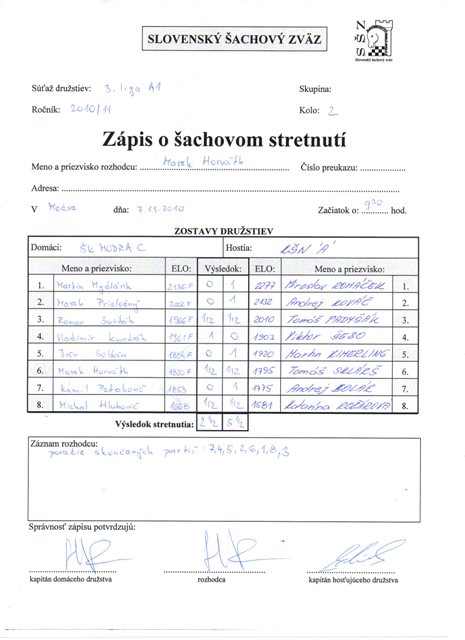 SLOVENSKÝ ŠACHOVÝ ZVÄZ
SŠZ
Slovenský šachový zväz
Súťaž družstiev: 3. liga A1 Skupina:
Ročník: 2010/11 Kolo: 2
Zápis o šachovom stretnutí
Meno a priezvisko rozhodcu: Marek Horváth Číslo preukazu:
Adresa:
V Modre dňa: 7.11.2010 Začiatok o: 9³⁰ hod.
ZOSTAVY DRUŽSTIEV
Domáci: ŠK MODRA C Hostia: KŠN 'A'
Meno a priezvisko: ELO: Výsledok: ELO: Meno a priezvisko:
1. Martin 2136 F 0 1 2277 Miroslav 1.
2. Marek 2002 F 0 1 2132 Andrej KOVÁČ 2.
3. Roman Šustík 1966 F 1/2 1/2 2010 Tomáš 3.
4. Vladimír 1961 F 1 0 1903 Viktor 4.
5. Ján Soldán 1884 F 0 1 1920 Martin KIMERLING 5.
6. Marek Horváth 1820 F 1/2 1/2 1795 Tomáš 6.
7. Kamil 1853 0 1 1775 Andrej KOLÁR 7.
8. Michal 1668 1/2 1/2 1581 Katarína 8.
Výsledok stretnutia: 2 1/2 5 1/2
Záznam rozhodcu:
poradie skončených partií: 7,4,5,2,6,1,8,3
Správnosť zápisu potvrdzujú:
kapitán domáceho družstva rozhodca kapitán hosťujúceho družstva